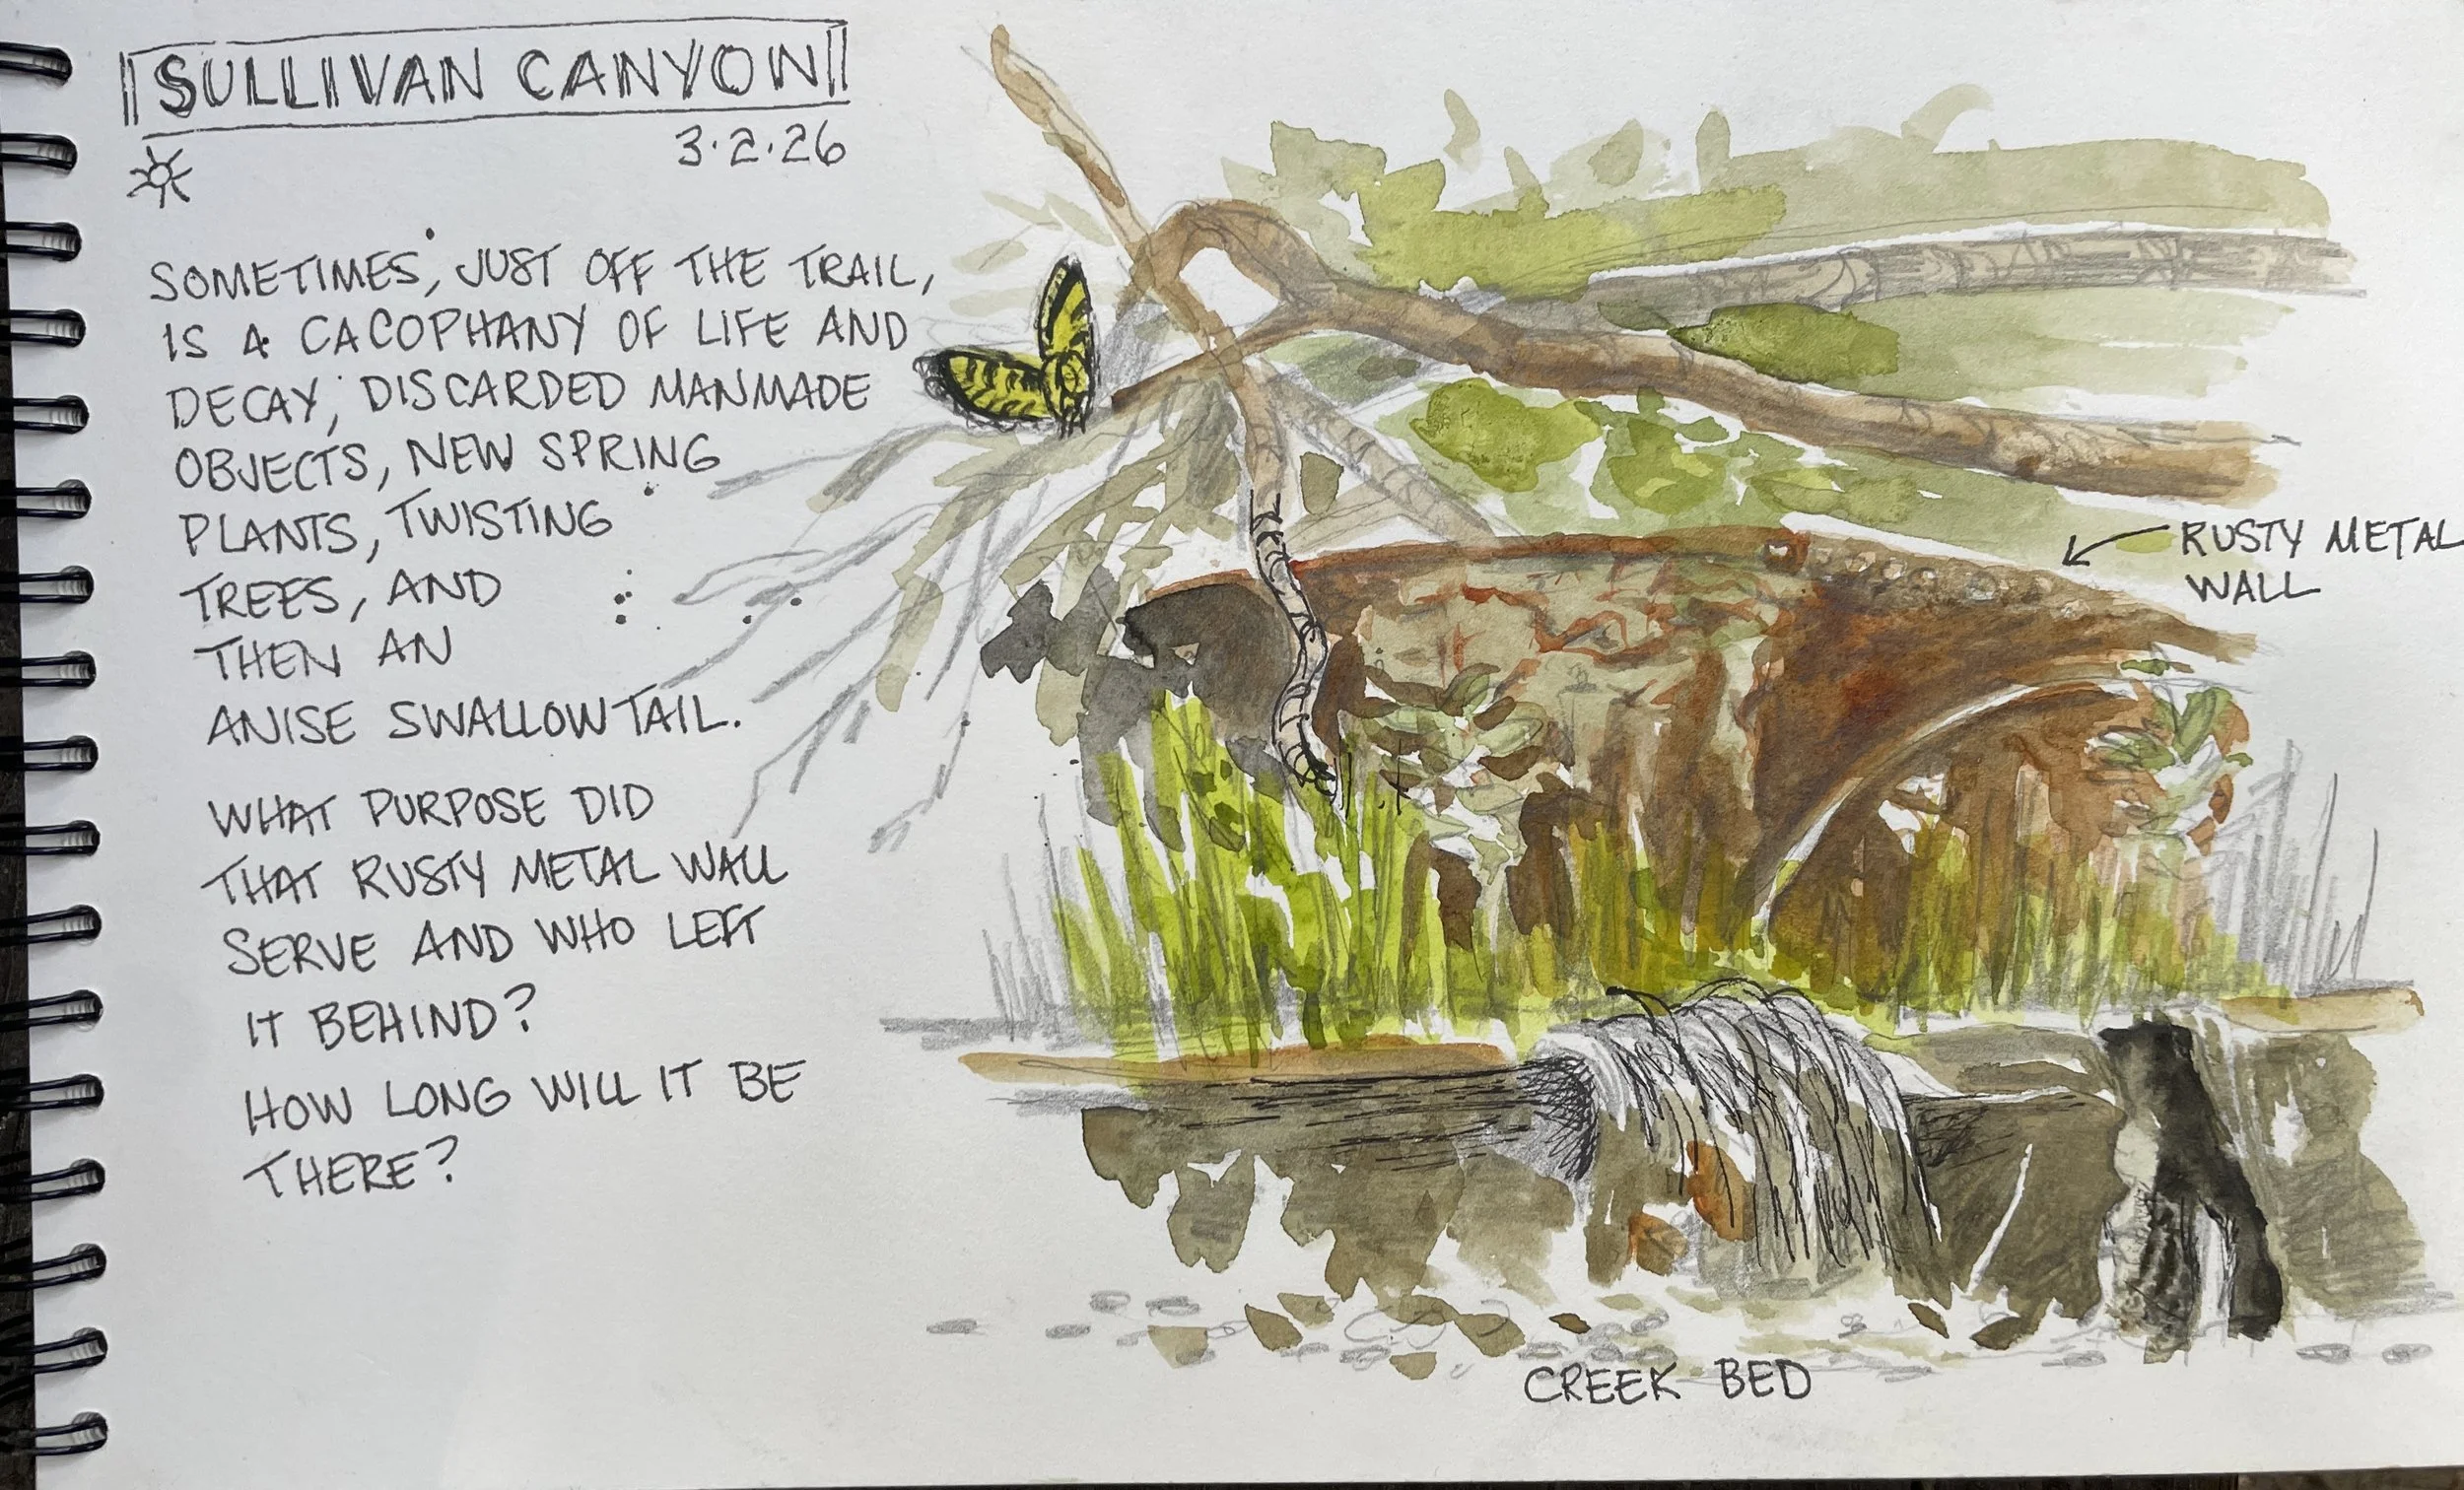 SULLIVAN CANYON
3.2.26
SOMETIMES, JUST OFF THE TRAIL,
IS A CACOPHANY OF LIFE AND
DECAY, DISCARDED MANMADE
OBJECTS, NEW SPRING
PLANTS, TWISTING
TREES, AND
THEN AN
ANISE SWALLOWTAIL.
WHAT PURPOSE DID
THAT RUSTY METAL WALL
SERVE AND WHO LEFT
IT BEHIND?
HOW LONG WILL IT BE
THERE?
RUSTY METAL
WALL
CREEK BED